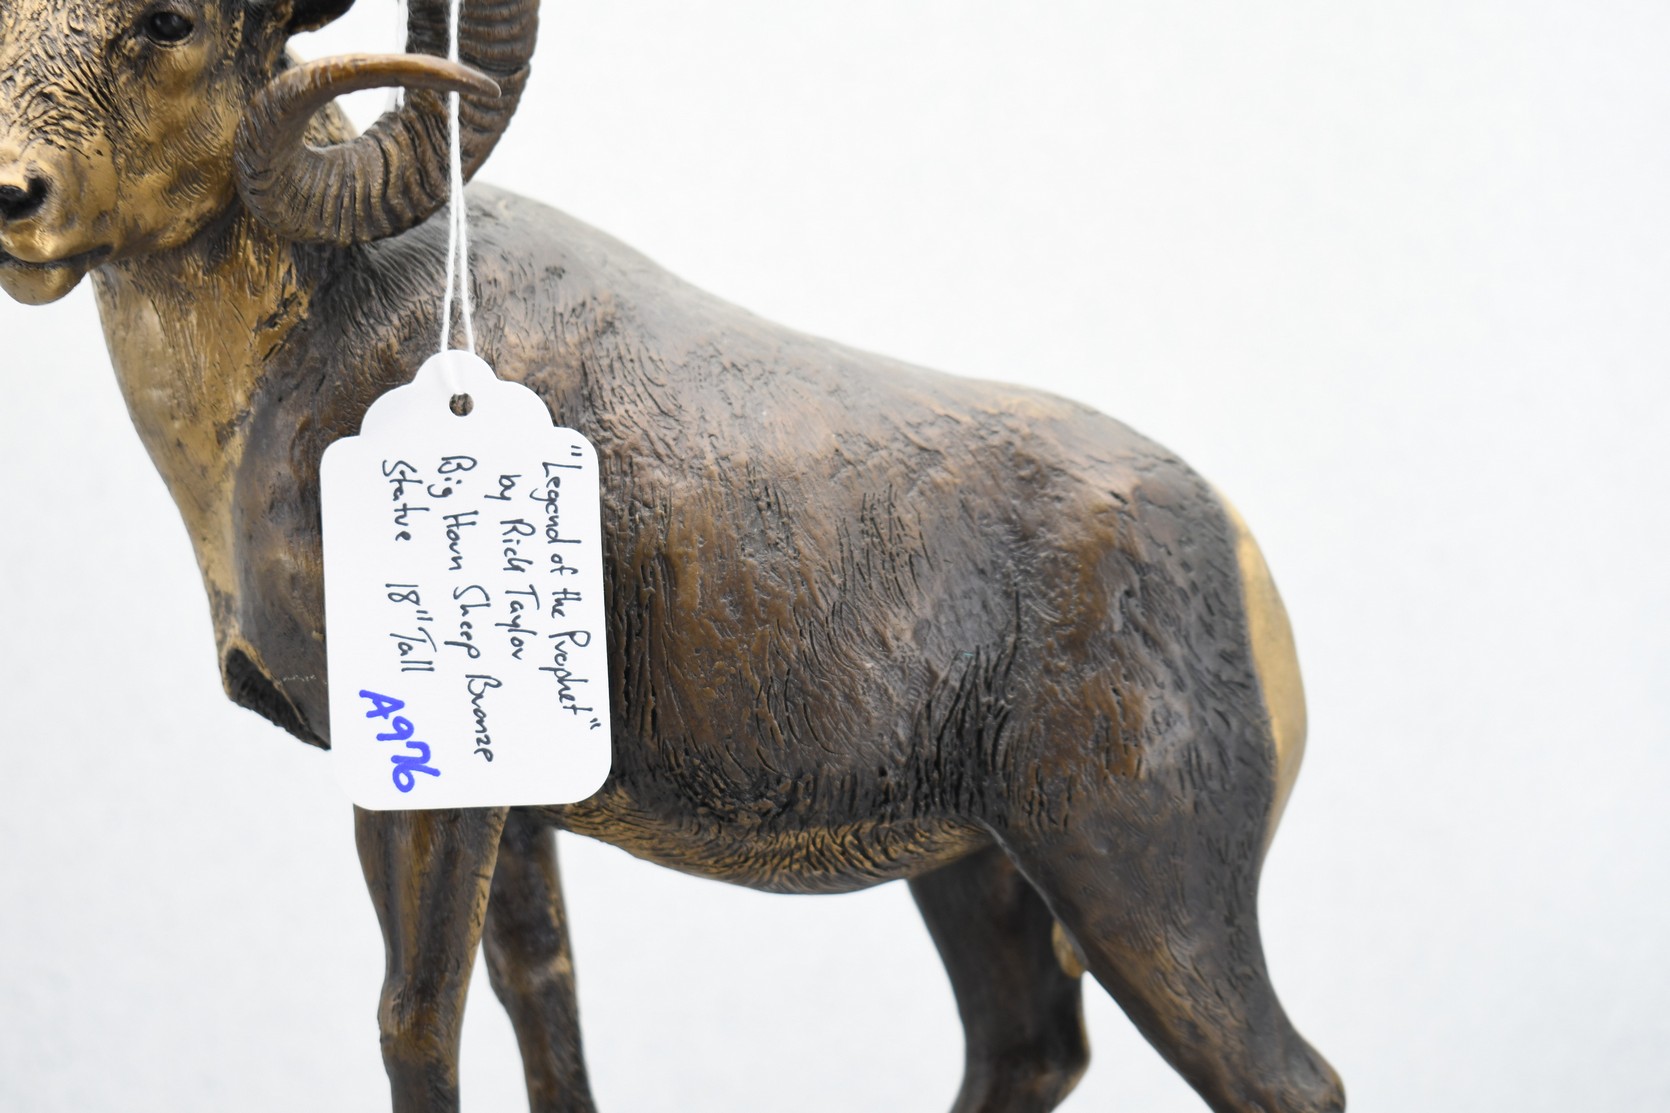 "Legend of the Prophet"
by Rick Taylor
Big Horn Sheep Bronze
Statue 18" Tall
A976